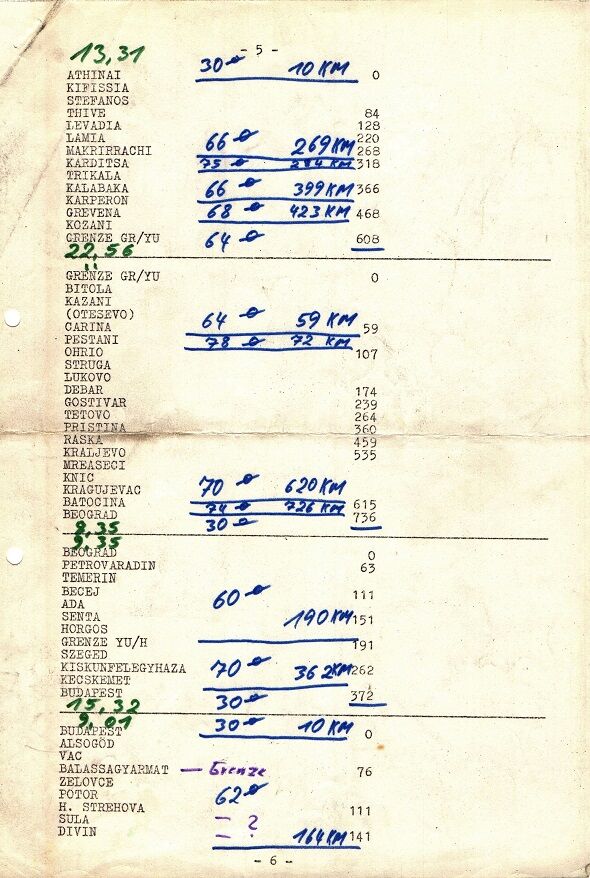 - 5 -
13,31
30 ø 10 KM
ATHINAI 0
KIFISSIA
STEFANOS
THIVE 84
LEVADIA 128
LAMIA 220
66 ø 269 KM
MAKRIRRACHI 268
KARDITSA 75 ø 284 KM 318
TRIKALA
KALABAKA 66 ø 399 KM 366
KARPERON
GREVENA 68 ø 423 KM 468
KOZANI
GRENZE GR/YU 64 ø 608
22,56
GRENZE GR/YU 0
BITOLA
KAZANI
(OTESEVO)
CARINA 64 ø 59 KM 59
PESTANI 78 ø 72 KM
OHRIO 107
STRUGA
LUKOVO
DEBAR 174
GOSTIVAR 239
TETOVO 264
PRISTINA 360
RASKA 459
KRALJEVO 535
MREASECI
KNIC
KRAGUJEVAC 70 ø 620 KM
BATOCINA 74 ø 726 KM 615
BEOGRAD 30 ø 736
8,35
9,35
BEOGRAD 0
PETROVARADIN 63
TEMERIN
BECEJ 111
ADA 60 ø
SENTA 190 KM 151
HORGOS
GRENZE YU/H 191
SZEGED
KISKUNFELEGYHAZA 70 ø 362 KM 262
KECSKEMET
BUDAPEST 30 ø 372
15,32
9,01
BUDAPEST 30 ø 10 KM 0
ALSOGÖD
VAC
BALASSAGYARMAT — Grenze 76
ZELOVCE
POTOR 62 ø
H. STREHOVA 111
SULA – ?
DIVIN – 164 KM 141
- 6 -